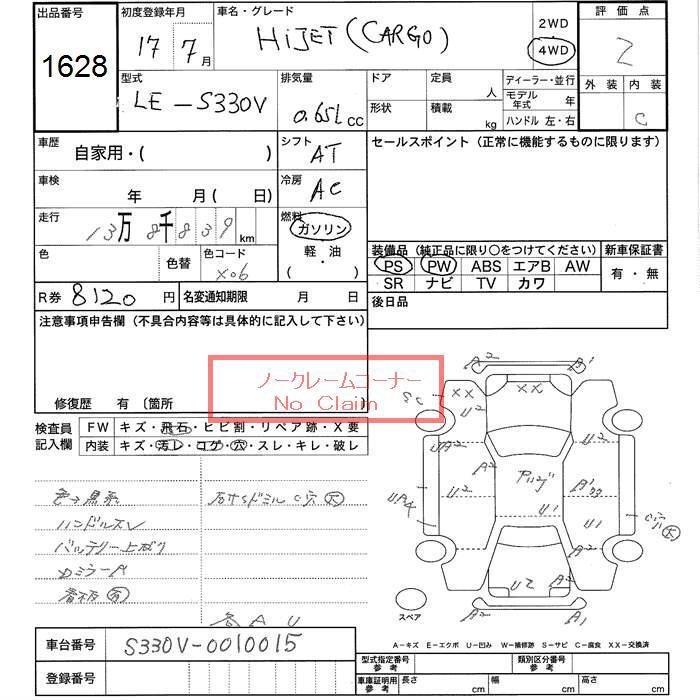 出品番号
1628
初度登録年月
17 7月
車名・グレード
HiJET (CARGO)
2WD
4WD
評価点
2
外装 内装
C
型式
LE-S330V
排気量
0.65L cc
ドア
定員
人
形状
積載
kg
ディーラー・並行
モデル年式 年
ハンドル 左・右
車歴
自家用・( )
シフト
AT
セールスポイント (正常に機能するものに限ります)
車検
年 月( 日)
冷房
AC
走行
13万8千839km
燃料
ガソリン
軽・油
( )
色
色替
色コード
X06
装備品 (純正品に限り○をつけてください)
PS PW ABS エアB AW
SR ナビ TV カワ
新車保証書
有・無
R券 8120円
名変通知期限 月 日
後日品
注意事項申告欄 (不具合内容等は具体的に記入して下さい)
ノークレームコーナー
No Claim
修復歴 有 〔箇所 〕
検査員記入欄
FW キズ・飛石・ヒビ割・リペア跡・X要
内装 キズ・汚レ・コゲ・穴・スレ・キレ・破レ
ハンドルスレ
バッテリー上がり
看板
各 A U
スペア
A2 B1
XX XX
U2
A2
U2 A2
U2
U1
U1
U2 A2
A2 A1
車台番号 S330V-0010015
登録番号
A-キズ E-エクボ U-凹み W-補修跡 S-サビ C-腐食 XX-交換済
型式指定番号 参考
類別区分番号 参考
車庫証明用 参考
長さ cm
幅 cm
高さ cm